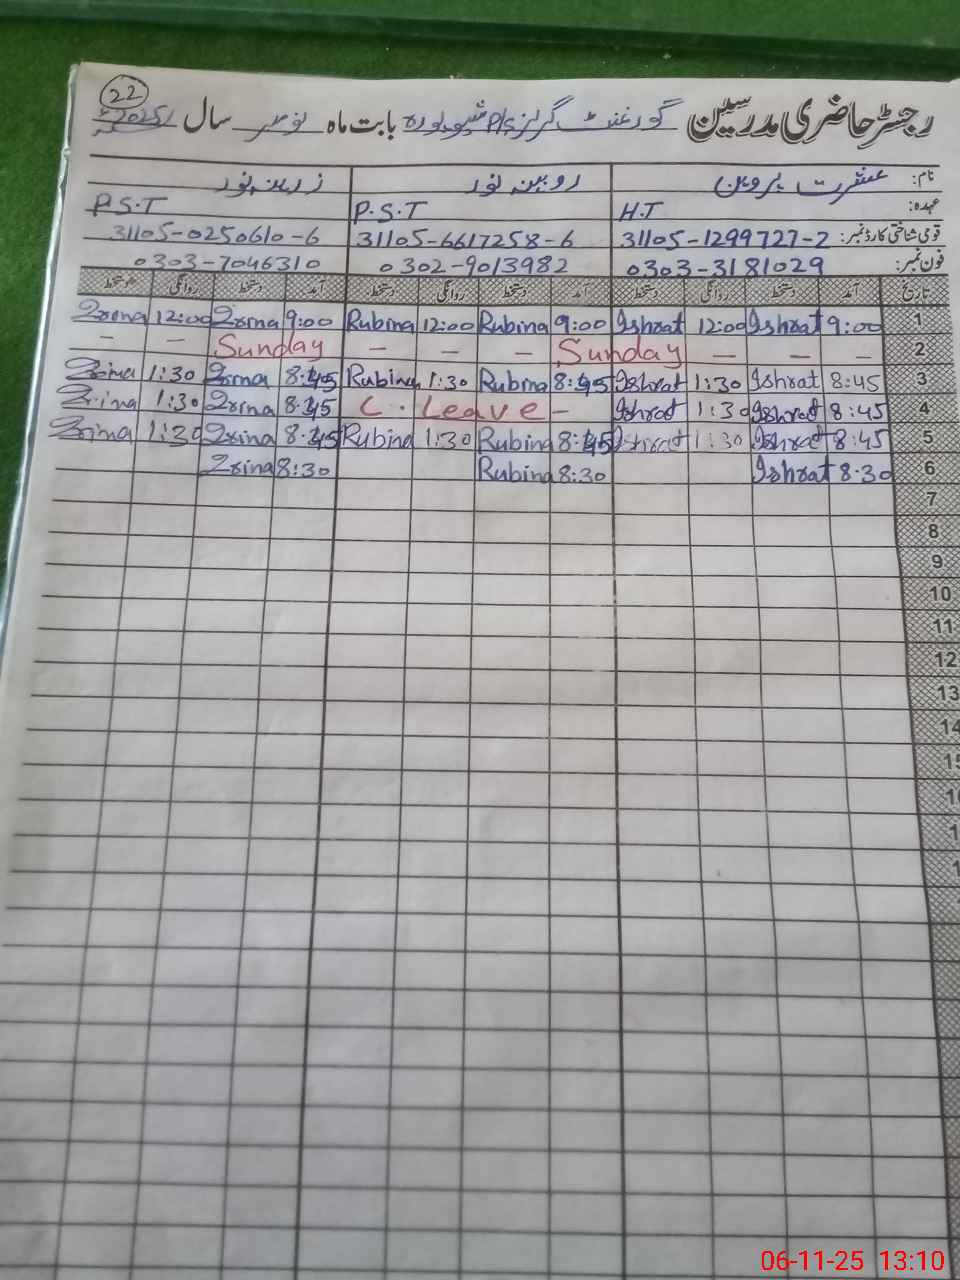 22
رجسٹر حاضری مدرسین گورنمنٹ گرلز P/S بابت ماہ نومبر سال 2025ء
نام: عشرت پروین روبینہ نور زرینہ نور
عہدہ: H.T P.S.T P.S.T
قومی شناختی کارڈ نمبر: 31105-1299727-2 31105-6617258-6 31105-0250610-6
فون نمبر: 0303-3181029 0302-9013982 0303-7046310
تاریخ آمد دستخط روانگی دستخط آمد دستخط روانگی دستخط آمد دستخط روانگی دستخط
1 9:00 Ishrat 12:00 Ishrat 9:00 Rubina 12:00 Rubina 9:00 Zrina 12:00 Zrina
2 – – – Sunday – – – Sunday – –
3 8:45 Ishrat 1:30 Ishrat 8:45 Rubina 1:30 Rubina 8:45 Zrina 1:30 Zrina
4 8:45 Ishrat 1:30 Ishrat C. Leave – 8:45 Zrina 1:30 Zrina
5 8:45 Ishrat 1:30 Ishrat 8:45 Rubina 1:30 Rubina 8:45 Zrina 1:30 Zrina
6 8:30 Ishrat 8:30 Rubina 8:30 Zrina
7
8
9
10
11
12
13
14
15
06-11-25 13:10